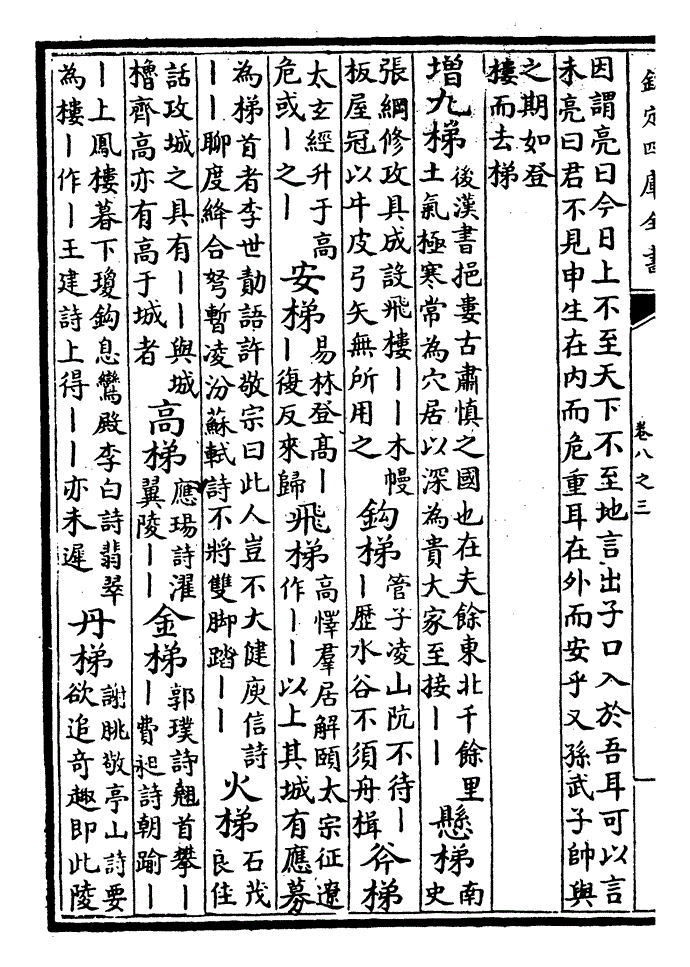 欽定四庫全書
卷八之三
因謂亮曰今日上不至天下不至地言出子口入於吾耳可以言
未亮曰君不見申生在内而危重耳在外而安乎又孫武子帥與
之期如登
樓而去梯
增九梯
後漢書挹婁古肅慎之國也在夫餘東北千餘里
土氣極寒常為穴居以深為貴大家至接丨丨
懸梯
南
史
張綱修攻具成設飛樓丨丨木幔
板屋冠以牛皮弓矢無所用之
鈎梯
管子凌山阬不待丨
丨歴水谷不須舟楫
斧梯
太玄經升于高
危或丨之丨
安梯
易林登髙丨
丨復反來歸
飛梯
高懌羣居解頤太宗征遼
作丨丨以上其城有應募
為梯首者李世勣語許敬宗曰此人豈不大健庾信詩
丨丨聊度絳合弩暫凌汾蘇軾詩不將雙脚踏丨丨
火梯
石茂
良住
話攻城之具有丨丨與城
櫓齊高亦有高于城者
高梯
應瑒詩濯
翼陵丨丨
金梯
郭璞詩翹首攀丨
丨費昶詩朝踰丨
丨上鳳樓暮下瓊鈎息鸞殿李白詩翡翠
為樓丨作丨王建詩上得丨丨亦未遲
丹梯
謝朓敬亭山詩要
欲追奇趣即此陵